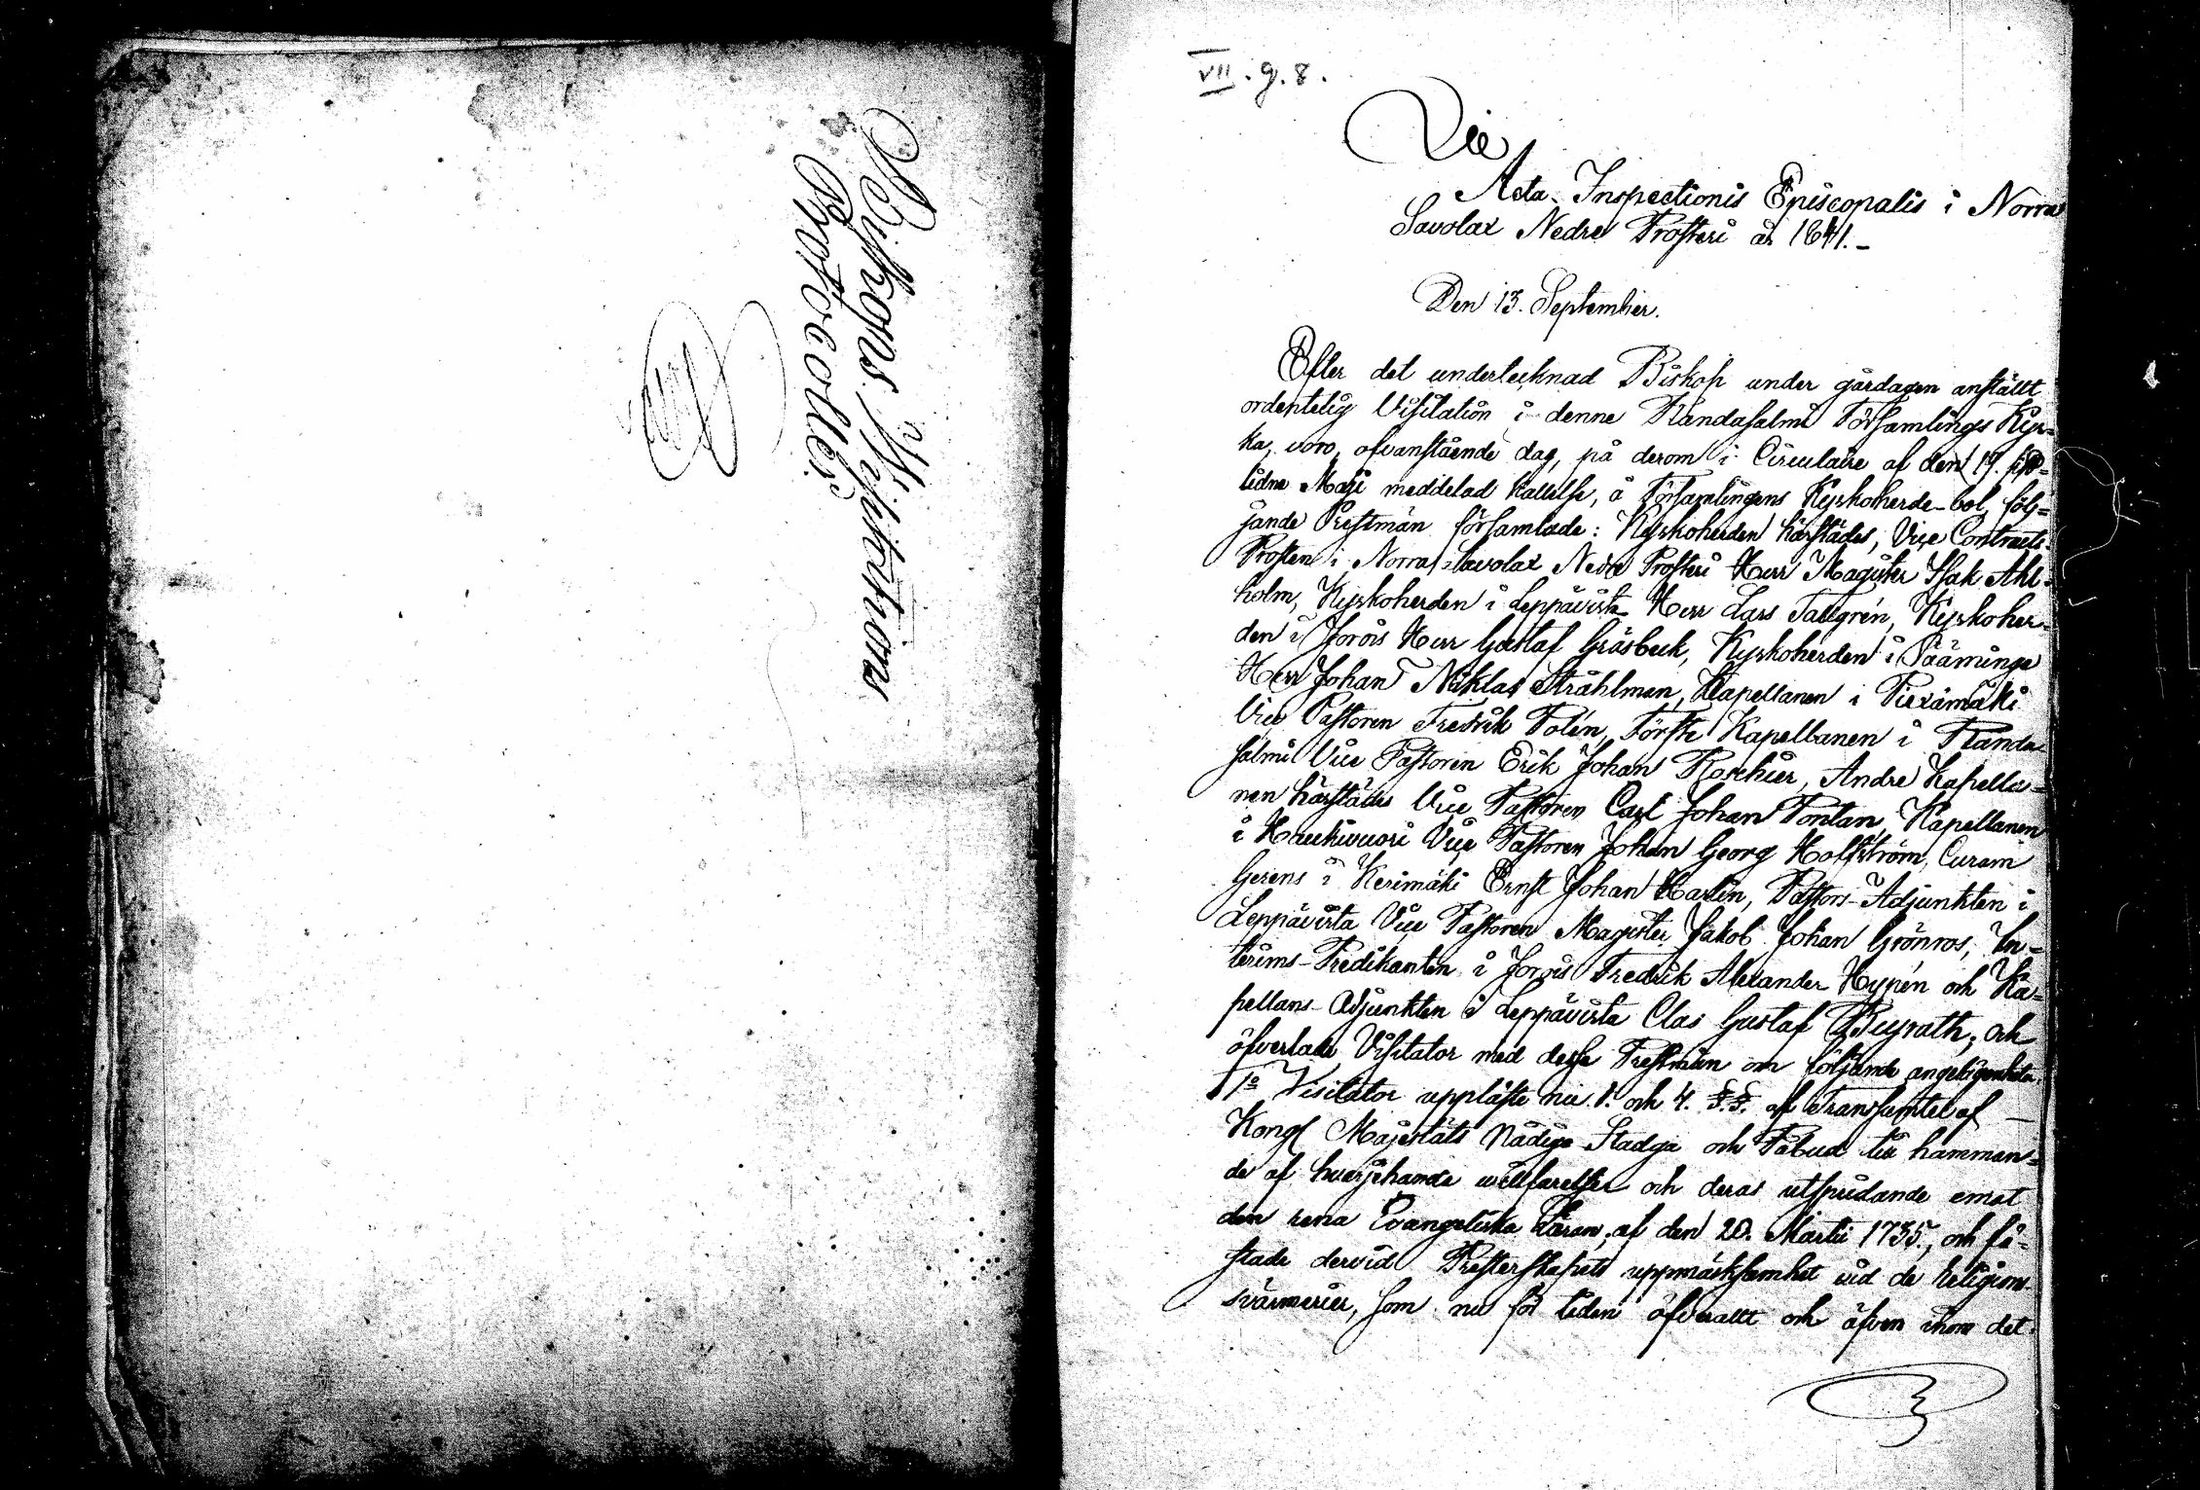 Biskops Visitations
Protocoller
VII. g. 8.
Acta Inspectionis Episcopalis i Norra
Savolax Nedre Prosteri år 1841.
Den 13. September.
Efter det undertecknad Biskop under gårdagen anställt
ordentelig Visitation i denne Randasalmi Församlings Kyr=
ka, voro, ofvanstående dag, på derom i Circulaire af den 19. sist=
lidne Maji meddelad kallelse, å Församlingens Kyrkoherde-bol, föl=
jande Prestmän församlade: Kyrkoherden härstädes, Vice Contracts-
Prosten i Norra Savolax Nedre Prosteri Herr Magister Isak Ahl-
holm, Kyrkoherden i Leppävirta Herr Lars Tallgrén, Kyrkoher-
den i Jorois Herr Gustaf Gråsbeck, Kyrkoherden i Sääminge
Herr Johan Niklas Stråhlman, Kapellanen i Piexämäki
Vice Pastoren Fredrik Polén, Förste Kapellanen i Randa
salmi Vice Pastoren Erik Johan Roschier, Andre Kapella=
nen härstädes Vice Pastoren Carl Johan Pontan, Kapellanen
i Haukivuori Vice Pastoren Johan Georg Hoffström, Curam
Gerens i Kerimäki Ernst Johan Harlin, Pastors-Adjunkten i
Leppävirta Vice Pastoren Magister Jakob Johan Grönros, In=
terims-Predikanten i Jorois Fredrik Alexander Hypén och Ka=
pellans-Adjunkten i Leppävirta Clas Gustaf Beyrath; och
öfverlade Visitator med desse Prestmän om följande angelägenheter.
1o Visitator uppläste nu 1. och 4. §.§. af Transumtet af
Kongl Majestäts Nådiga Stadga och Påbud till hämman=
de af hvarjehanda willfarelser och deras utspridande emot
den rena Evangeliska Läran, af den 20. Martii 1735, och fä=
stade dervid Presterskapets uppmärksamhet vid de religions-
svärmerier, som nu för tiden öfverallt och äfven inom det